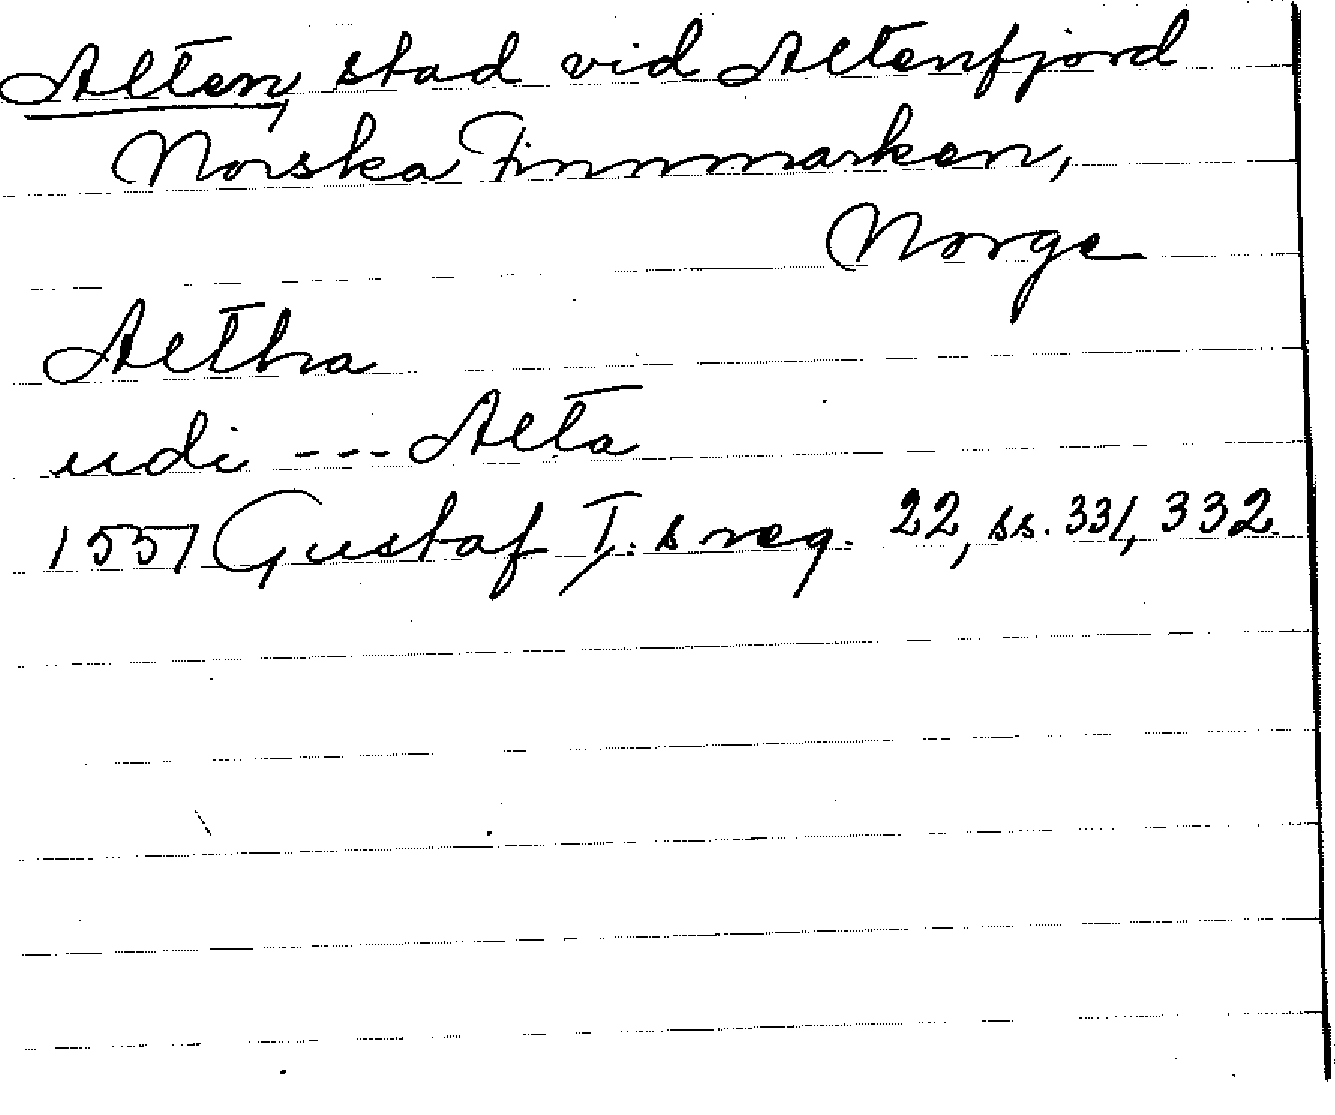 Alten, stad vid Altenfjord
Norska Finnmarken,
Norge
Altha
udi --- Alta
1557 Gustaf I.s reg. 22, ss. 331, 332